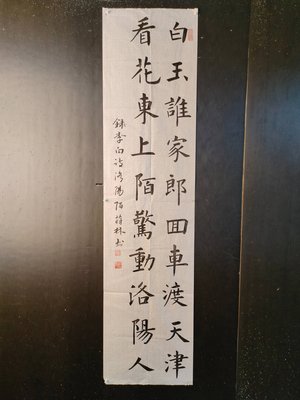 白玉誰家郎回車渡天津
看花東上陌驚動洛陽人
錄李白詩洛陽陌